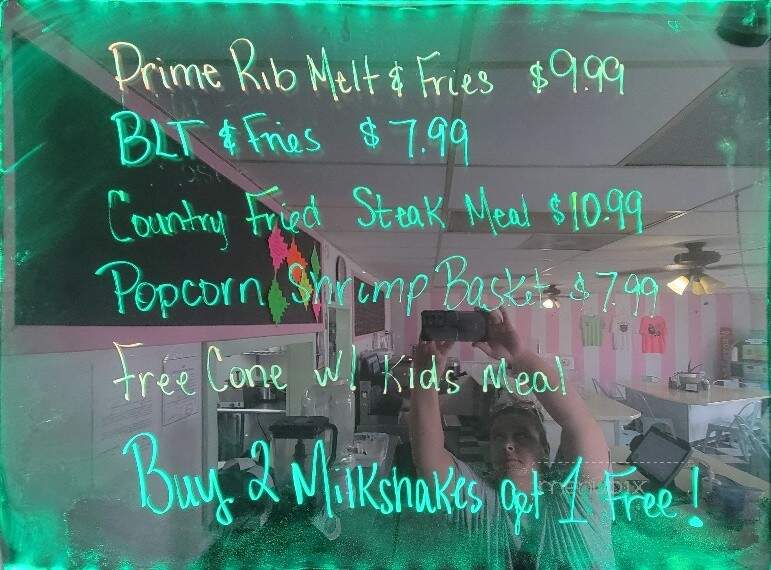 Prime Rib Melt & Fries $9.99
BLT & Fries $7.99
Country Fried Steak Meal $10.99
Popcorn Shrimp Basket $7.99
Free Cone w/ Kids Meal
Buy 2 Milkshakes get 1 Free!
menupix